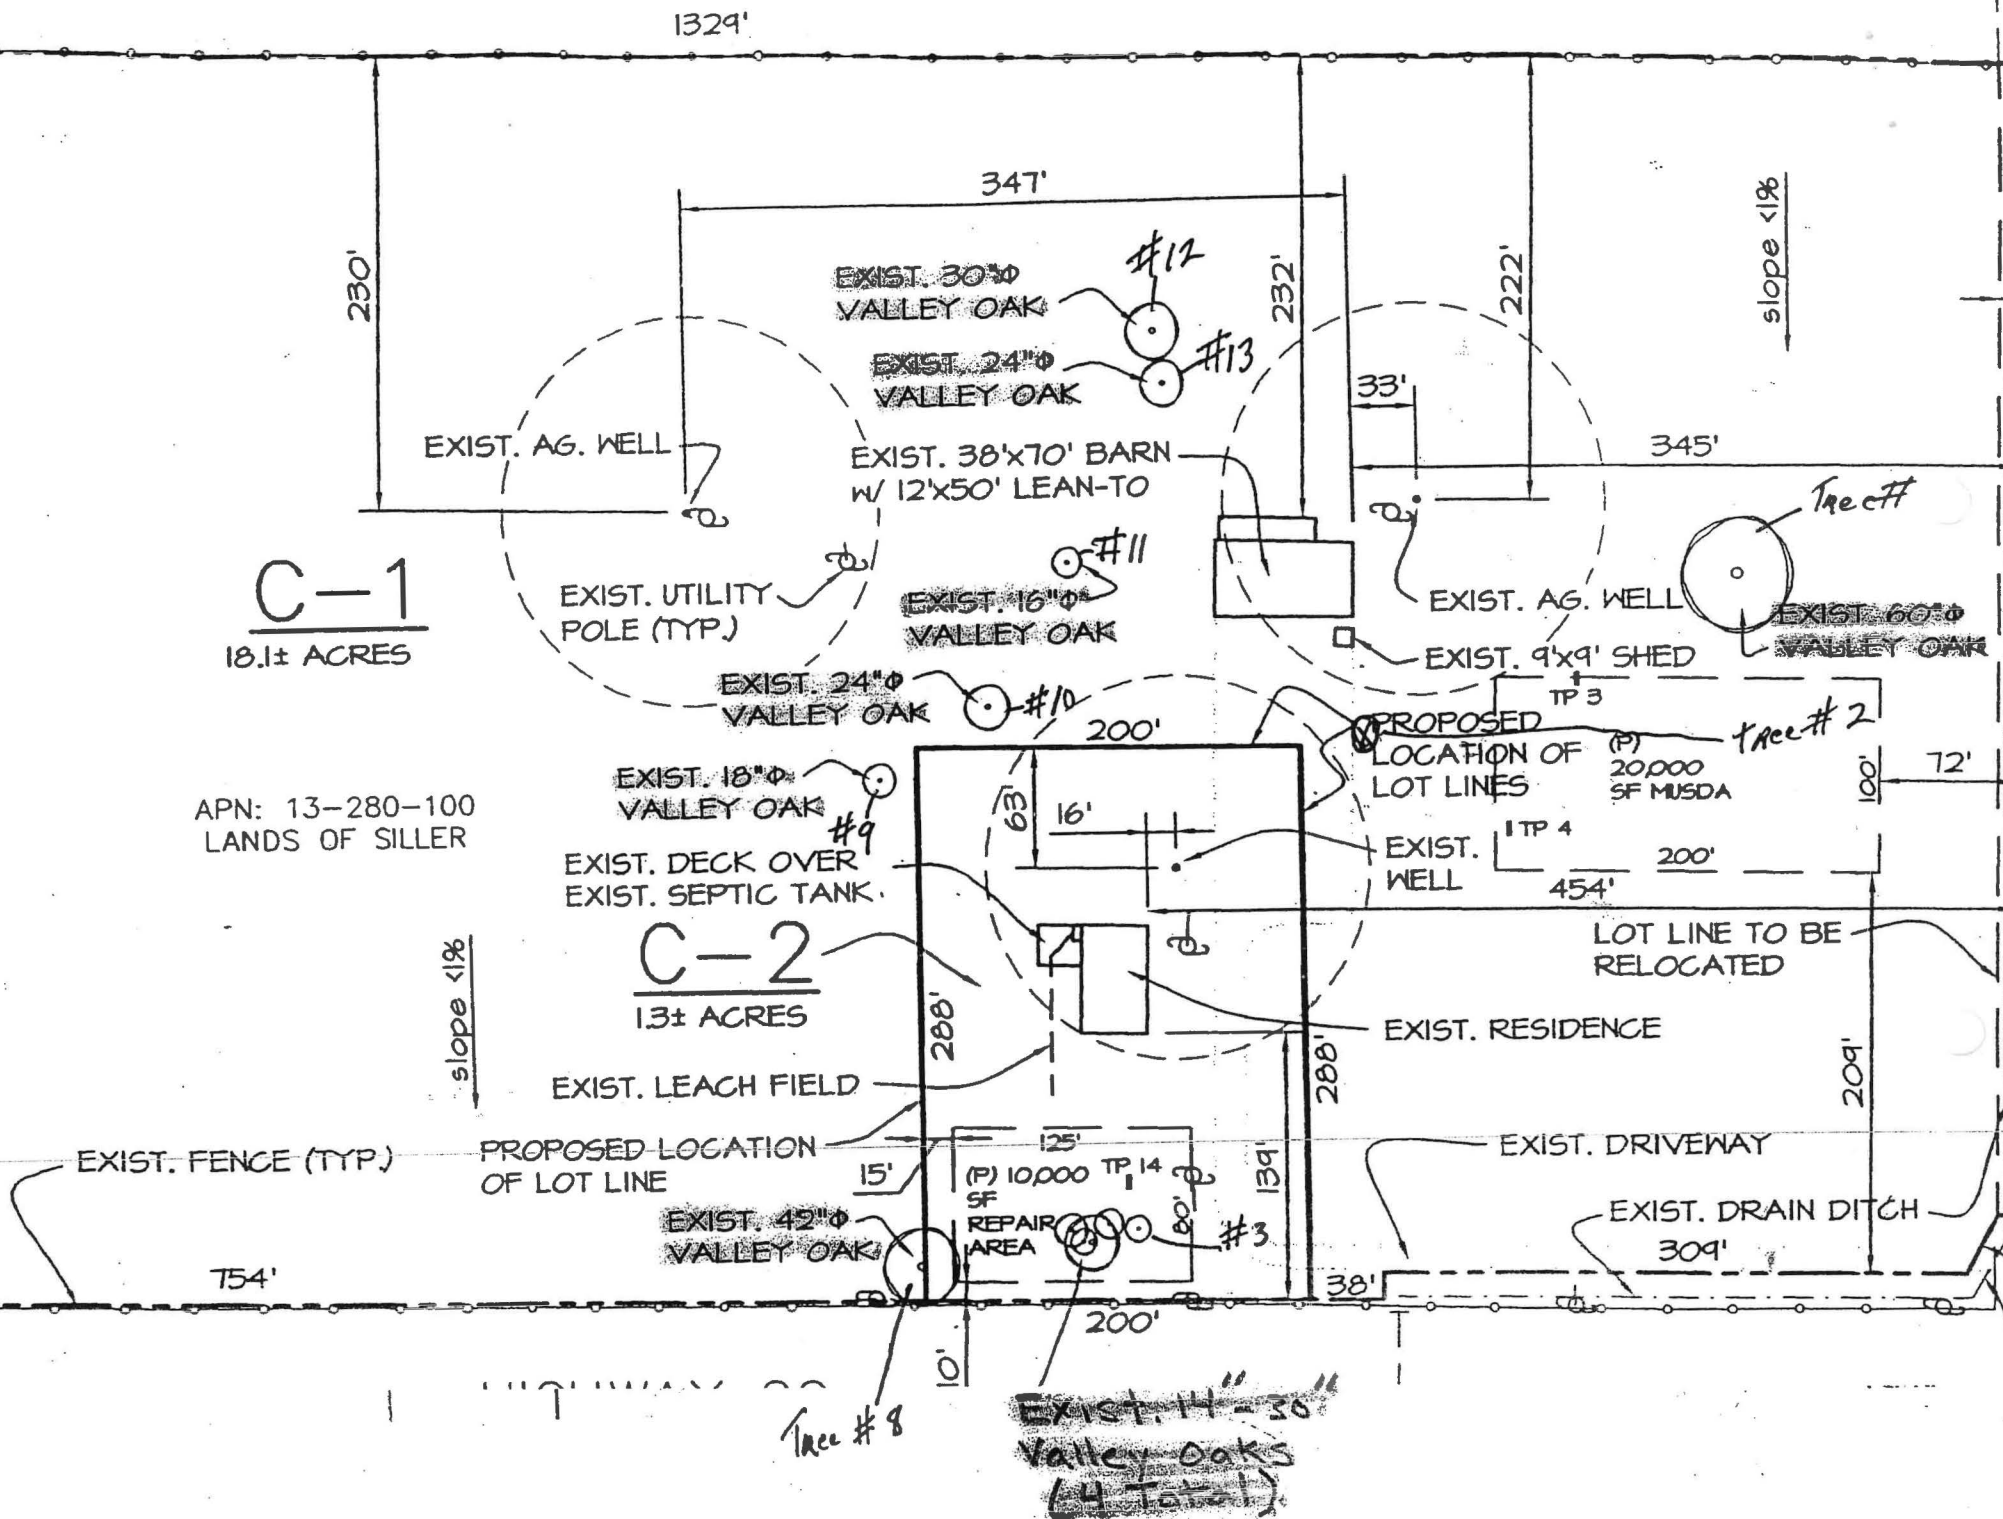 1329'
347'
230'
232'
222'
slope <1%
#12
EXIST. 30"Φ
VALLEY OAK
#13
EXIST. 24"Φ
VALLEY OAK
33'
345'
EXIST. AG. WELL
EXIST. 38'x70' BARN
w/ 12'x50' LEAN-TO
Tree#
C-1
18.1± ACRES
EXIST. UTILITY
POLE (TYP.)
#11
EXIST. 16"Φ
VALLEY OAK
EXIST. AG. WELL
EXIST. 60"Φ
VALLEY OAK
EXIST. 9'x9' SHED
TP 3
EXIST. 24"Φ
VALLEY OAK
#10
200'
PROPOSED
LOCATION OF
LOT LINES
(P)
20,000
SF MUSDA
Tree #2
100'
72'
EXIST. 18"Φ
VALLEY OAK
#9
63'
16'
APN: 13-280-100
LANDS OF SILLER
TP 4
200'
EXIST. DECK OVER
EXIST. SEPTIC TANK.
EXIST.
WELL
454'
C-2
1.3± ACRES
LOT LINE TO BE
RELOCATED
slope <1%
288'
EXIST. RESIDENCE
288'
209'
EXIST. LEACH FIELD
EXIST. FENCE (TYP.)
PROPOSED LOCATION
OF LOT LINE
15'
125'
(P) 10,000
SF
REPAIR
AREA
TP 14
80'
139'
EXIST. DRIVEWAY
EXIST. 42"Φ
VALLEY OAK
#3
EXIST. DRAIN DITCH
309'
754'
38'
200'
10'
Tree #8
EXIST. 14"-30"
Valley Oaks
(4 Total)